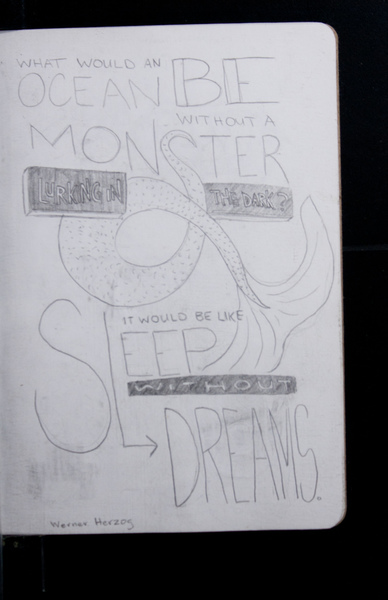 WHAT WOULD AN
OCEAN BE
WITHOUT A
MONSTER
LURKING IN
THE DARK?
IT WOULD BE LIKE
SLEEP
WITHOUT
DREAMS.
Werner Herzog